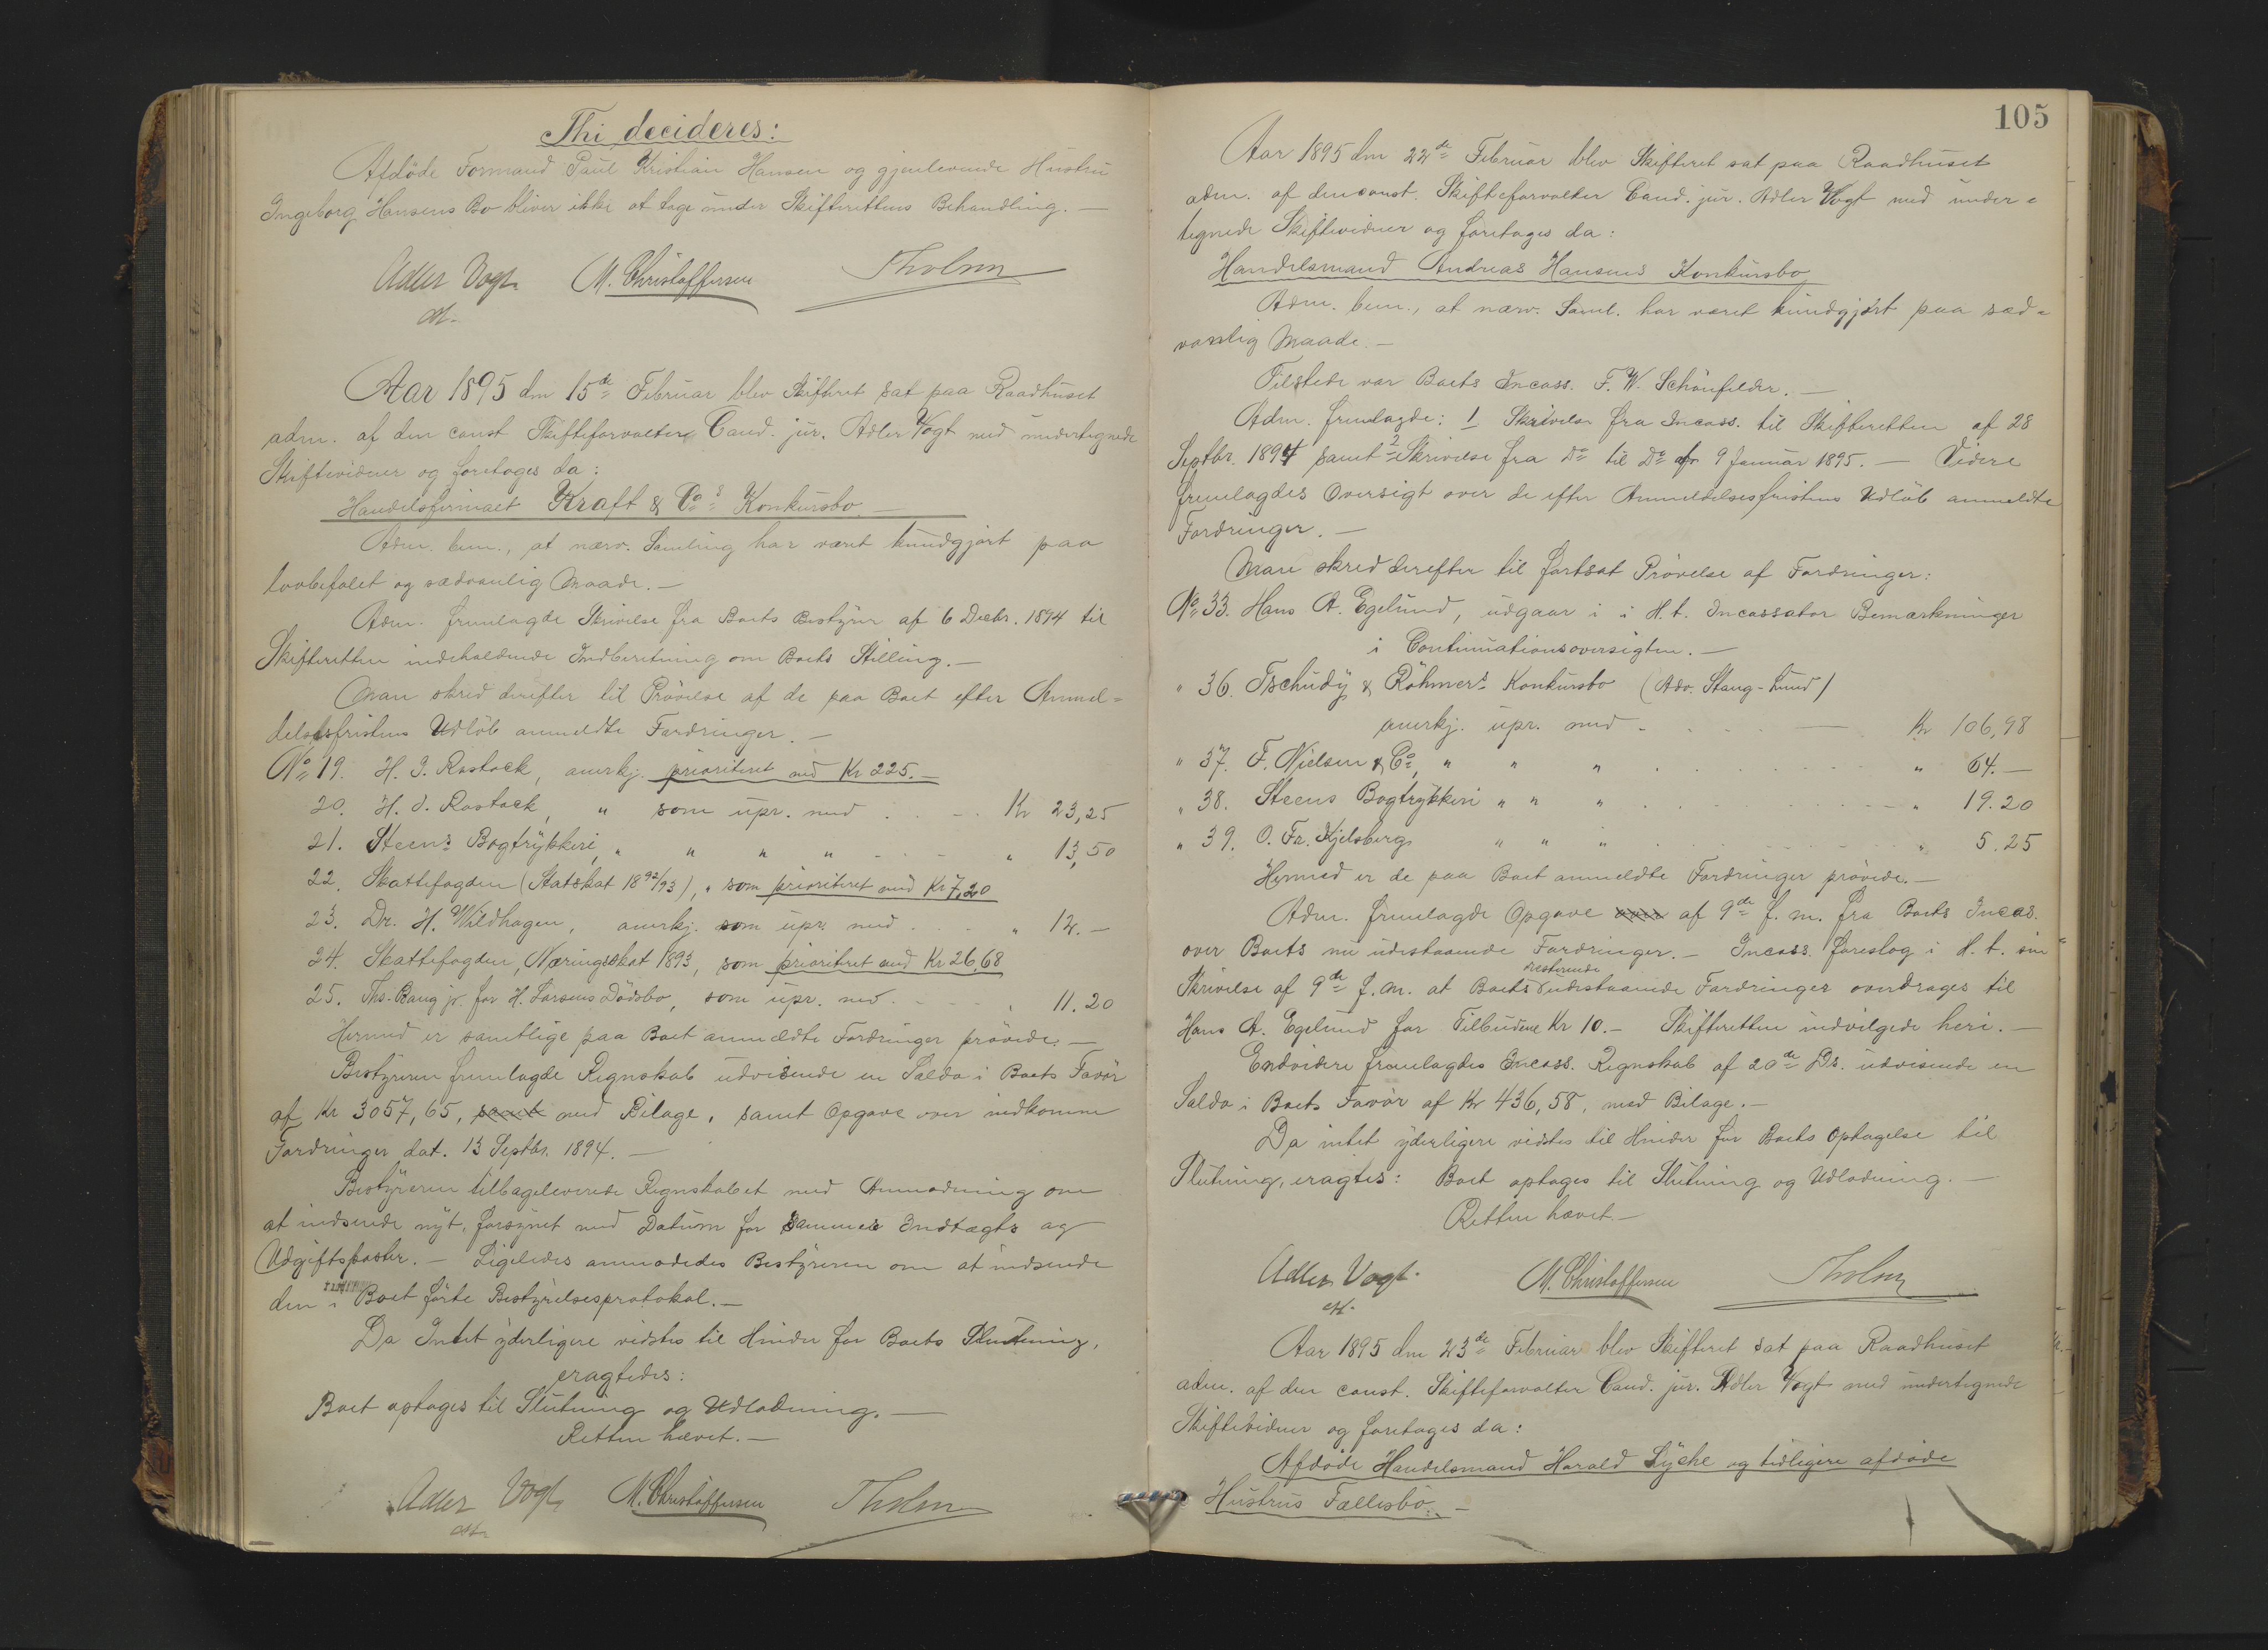 Thi decideres:
Afdöde Formand Paul Kristian Hansen og gjenlevende Hustru
Ingeborg Hansens Bo bliver ikke at tage under Skifterettens Behandling. —
Adler Vogt M. Christoffersen Tholm
Aar 1895 den 15de Februar blev Skifteret sat paa Raadhuset
adm. af den const Skifteforvalter Cand. jur. Adler Vogt med undertegnede
Skiftevidner og foretoges da:
Handelsfirmaet Kraft & Co's Konkursbo. —
Adm. bem., at nærv. Samling har været kundgjort paa
lovbefalet og sædvanlig Maade. —
Adm. fremlagde Skrivelse fra Boets Bestyrer af 6 Decbr. 1894 til
Skifteretten indeholdende Indberetning om Boets Stilling. —
Man skred derefter til Prövelse af de paa Boet efter Anmel=
delsesfristens Udlöb anmeldte Fordringer. —
No 19. H. J. Rostock, anerkj. prioriteret med Kr 225. —
20. H. J. Rostock, " som upr. med . . . Kr 23,25
21. Steens Bogtrykkeri, " " " " . . . " 13,50
22. Skattefogden (Statskat 1892/93), " som prioriteret med Kr 7,20
23. Dr. H. Wildhagen, anerkj. som upr. med . . . " 12. —
24. Skattefogden, Næringsskat 1893, som prioriteret med Kr 26,68
25. Ths. Bang jr. for H. Larsens Dödsbo, som upr. med . . . " 11.20
Hermed er samtlige paa Boet anmeldte Fordringer prövede. —
Bestyreren fremlagde Regnskab udvisende en Saldo i Boets Favör
af Kr 3057,65, samt med Bilage, samt Opgave over indkomne
Fordringer dat. 13 Septbr. 1894. —
Bestyreren tilbageleverede Regnskabet med Anmodning om
at indsende nyt, forsynet med Datum for sammes Indtægts og
Udgiftsposter. — Ligeledes anmodedes Bestyreren om at indsende
den i Boet förte Bestyrelsesprotokol. —
Da Intet yderligere vidstes til Hinder for Boets Slutning,
eragtedes:
Boet optages til Slutning og Udlodning. —
Retten hævet. —
Adler Vogt M. Christoffersen Tholm
105
Aar 1895 den 22de Februar blev Skifteret sat paa Raadhuset
adm. af den const. Skifteforvalter Cand. jur. Adler Vogt med under=
tegnede Skiftevidner og foretoges da:
Handelsmand Andreas Hansens Konkursbo
Adm. bem., at nærv. Saml. har været kundgjort paa sæd=
vanlig Maade. —
Tilstede var Boets Incass. F. W. Schönfelder. —
Adm. fremlagde: 1 Skrivelse fra Incass. til Skifteretten af 28
Septbr. 1894 samt 2 Skrivelse fra Do til Do af 9 Januar 1895. — Videre
fremlagdes Oversigt over de efter Anmeldelsesfristens Udlöb anmeldte
Fordringer. —
Man skred derefter til fortsat Prövelse af Fordringer:
No 33. Hans A. Egelund, udgaar i i H. t. Incassator Bemærkninger
i Continuationsoversigten. —
" 36. Tschudy & Röhmers Konkursbo (Adv. Stang-Lund)
anerkj. upr. med . . . — Kr 106,98
" 37. F. Nielsen & Co, " " " . . . " 64. —
" 38. Steens Bogtrykkeri " " " . . . " 19.20
" 39. O. Fr. Kjelsberg " " " . . . " 5.25
Hermed er de paa Boet anmeldte Fordringer prövede. —
Adm. fremlagde Opgave af 9de f. m. fra Boets Incas.
over Boets nu udestaaende Fordringer. — Incass. foreslog i H. t. sin
Skrivelse af 9de f. m. at Boets resterende udestaaende Fordringer overdrages til
Hans A. Egelund for Tilbudene Kr 10. — Skifteretten indvilgede heri. —
Endvidere fremlagdes Incass. Regnskab af 20de Ds. udvisende en
Saldo i Boets Favör af Kr 436,58, med Bilage. —
Da intet yderligere vidstes til Hinder for Boets Optagelse til
Slutning, eragtes: Boet optages til Slutning og Udlodning. —
Retten hævet. —
Adler Vogt M. Christoffersen Tholm
Aar 1895 den 23de Februar blev Skifteret sat paa Raadhuset
adm. af den const. Skifteforvalter Cand. jur. Adler Vogt med undertegnede
Skiftevidner og foretoges da:
Afdöde Handelsmand Harald Lyche og tidligere afdöde
Hustrus Fællesbo. —